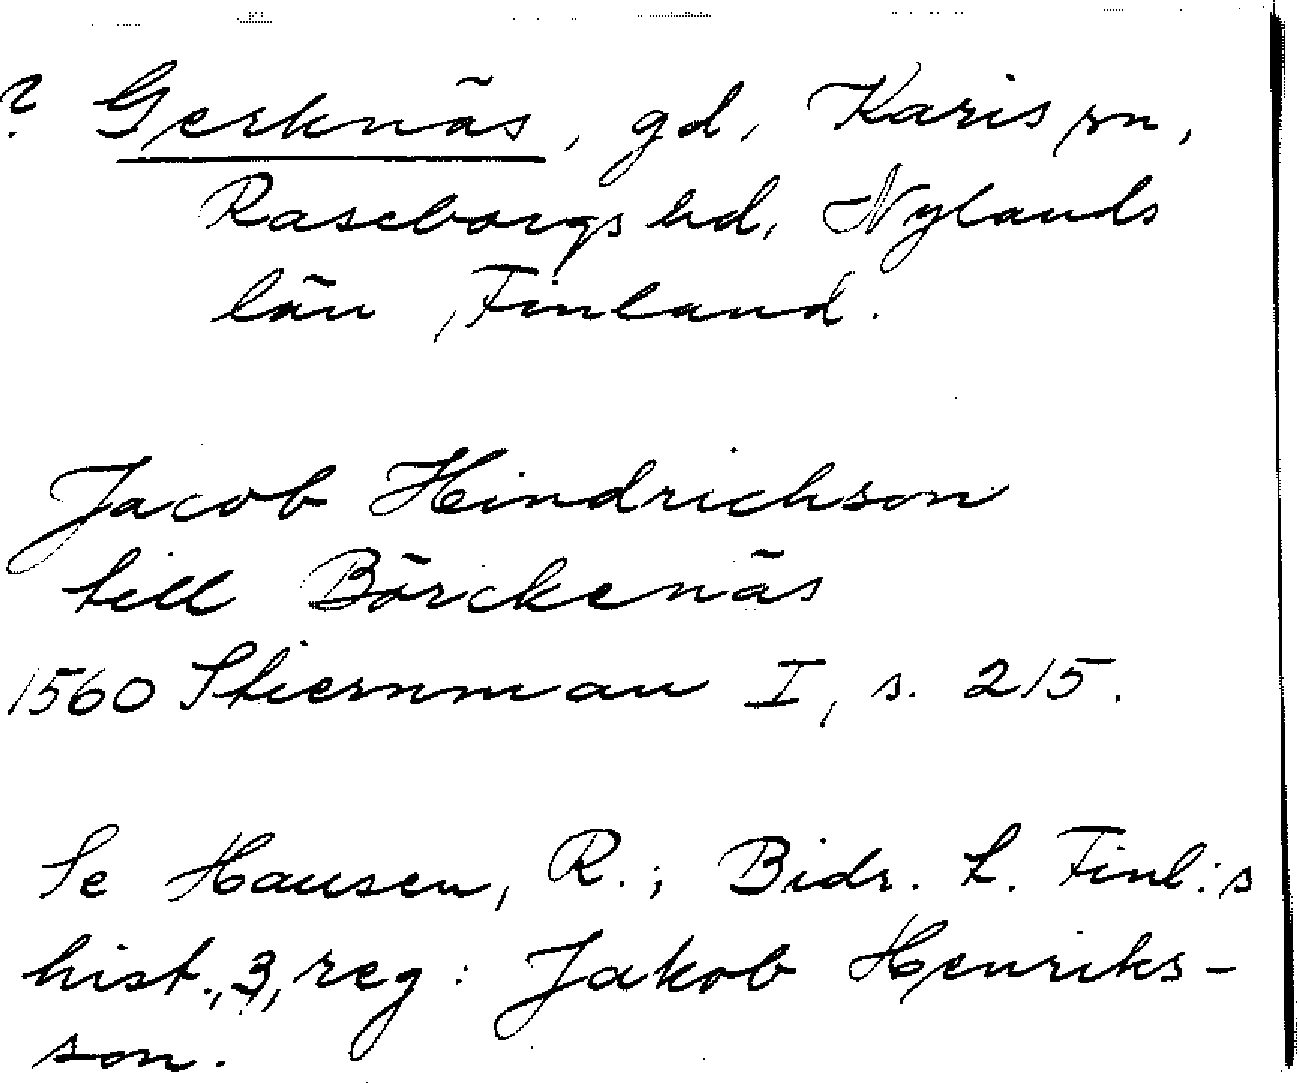 ? Gerknäs, gd, Karis sn,
Raseborgs hd, Nylands
län, Finland.
Jacob Hindrichson
till Börckenäs
1560 Stiernman I, s. 215.
Se Hausen, R.; Bidr. t. Finl:s
hist., 3, reg: Jakob Henriks-
son.